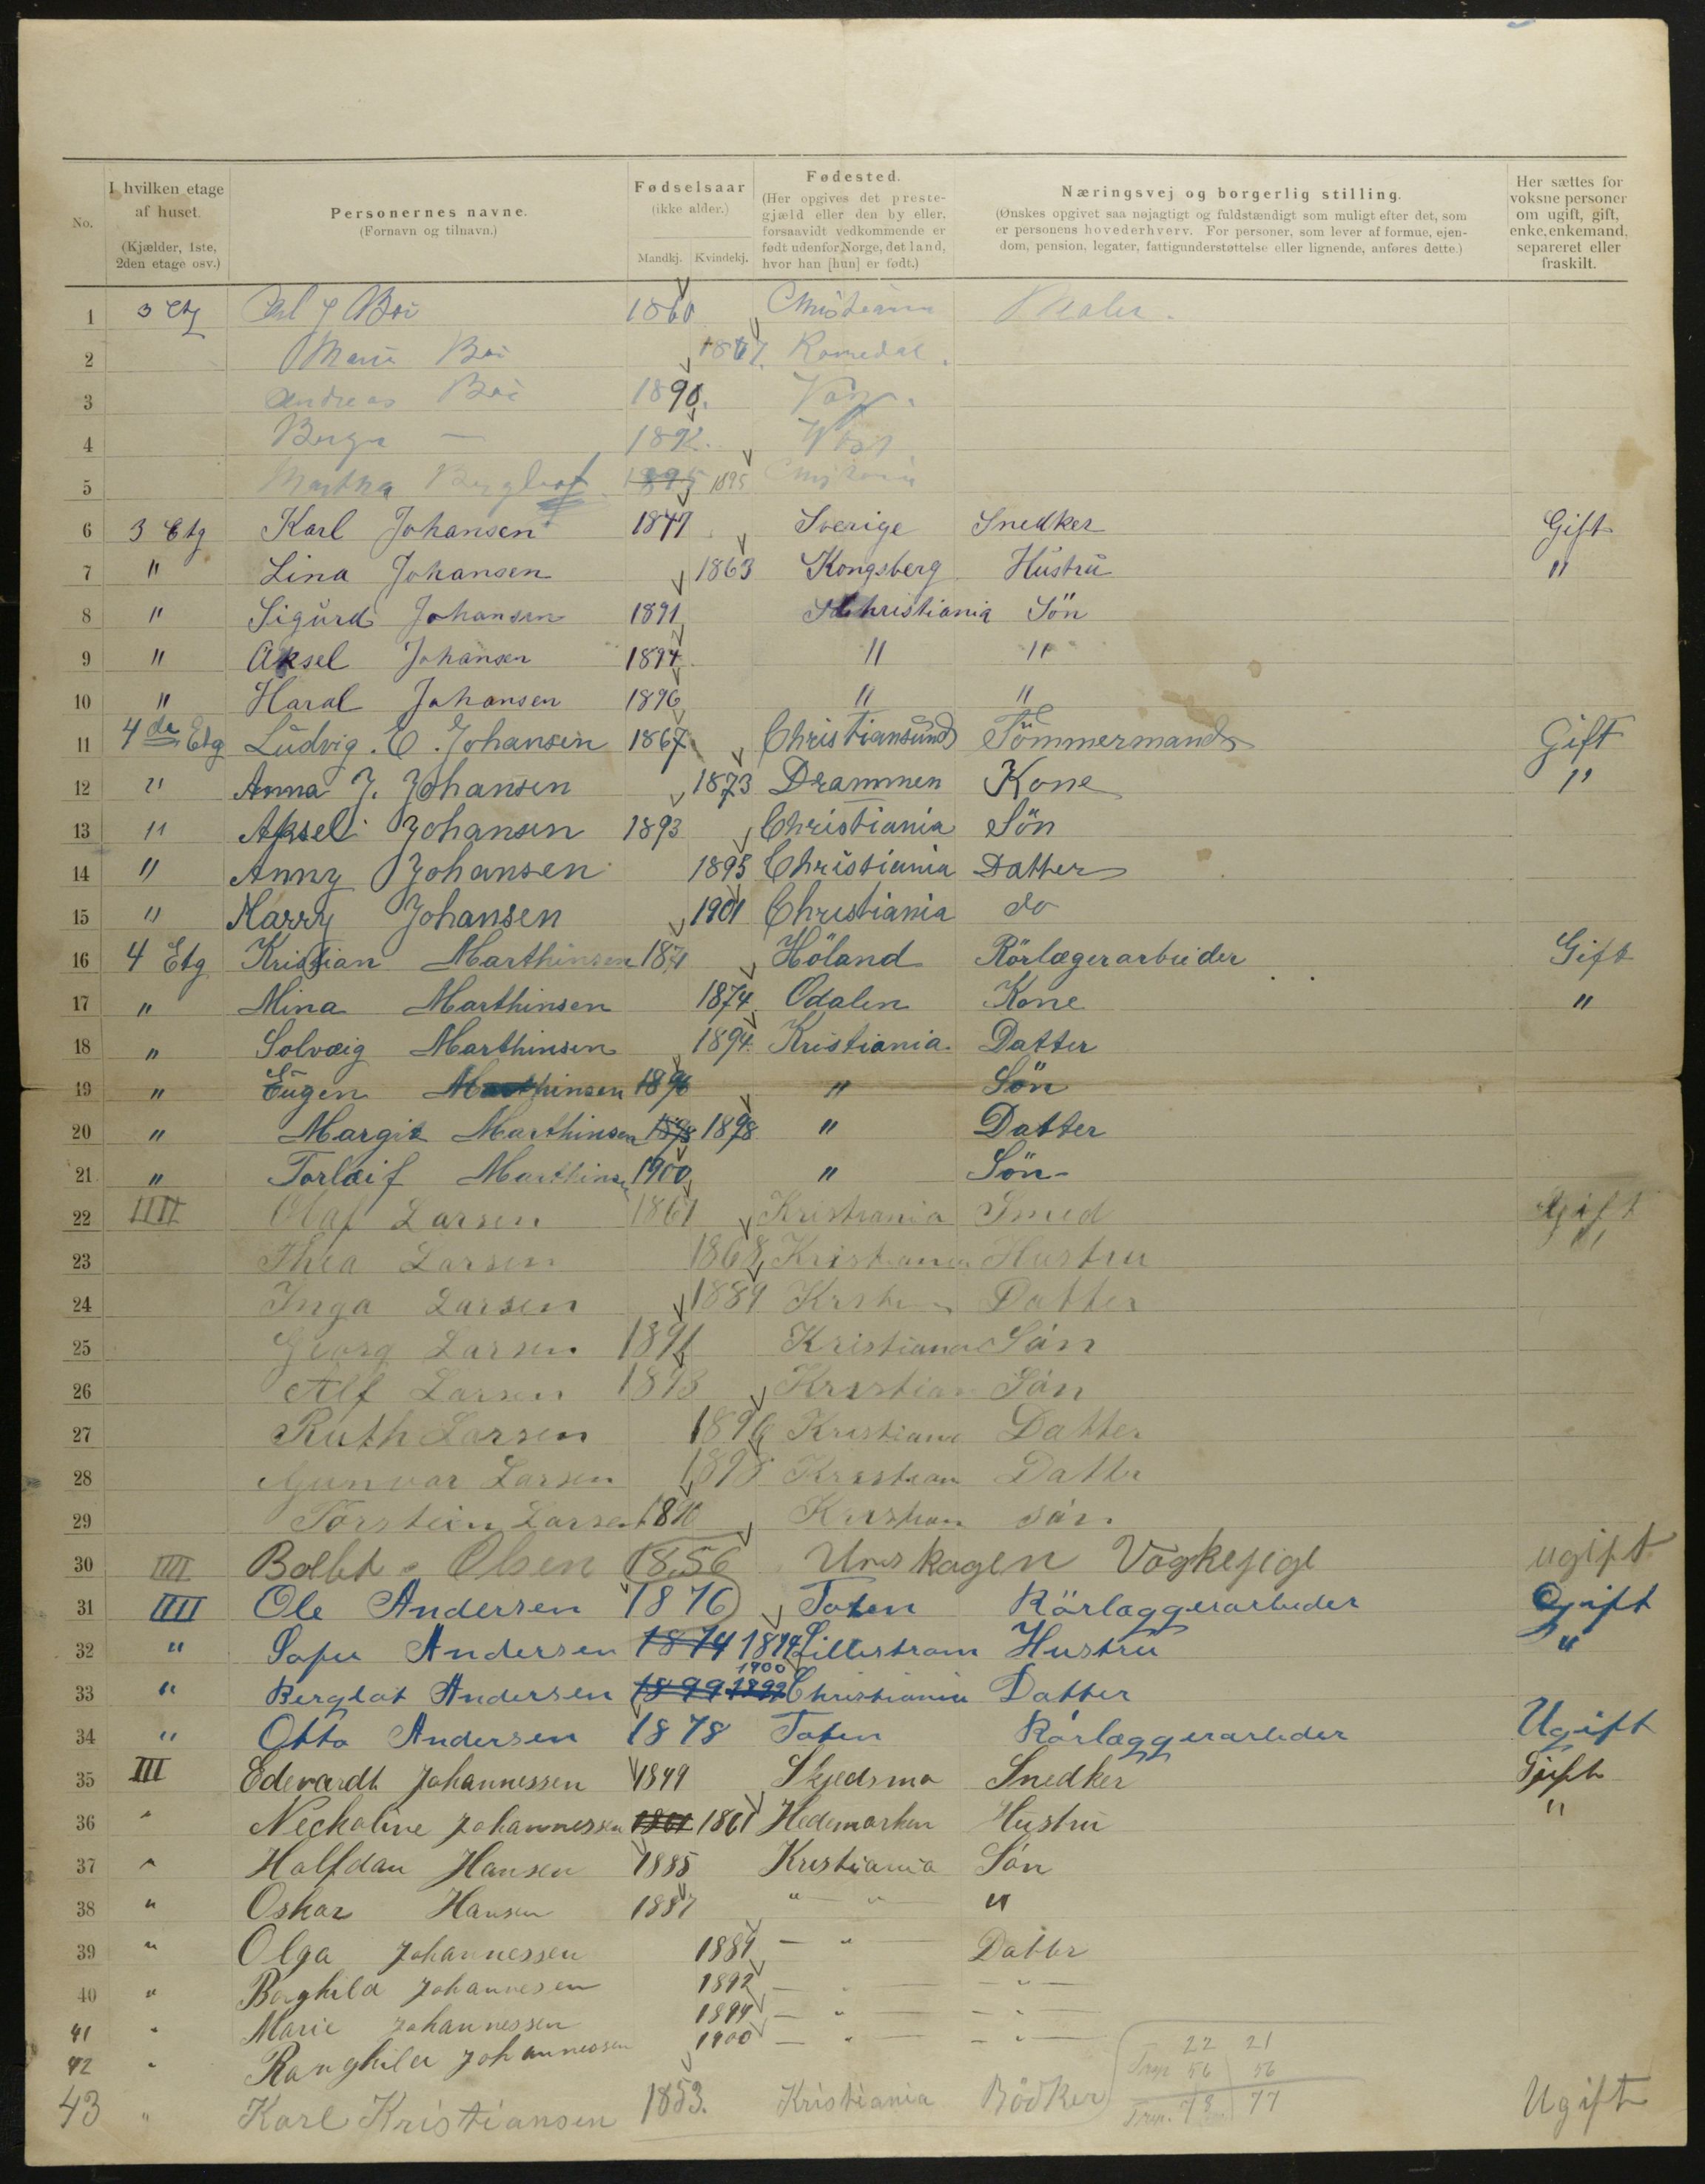 No.
I hvilken etage
af huset.
(Kjælder, 1ste,
2den etage osv.)
Personernes navne.
(Fornavn og tilnavn.)
Fødselsaar
(ikke alder.)
Mandkj. Kvindekj.
Fødested.
(Her opgives det preste-
gjæld eller den by eller,
forsaavidt vedkommende er
født udenfor Norge, det land,
hvor han [hun] er født.)
Næringsvej og borgerlig stilling.
(Ønskes opgivet saa nøjagtigt og fuldstændigt som muligt efter det, som
er personens hovederhverv. For personer, som lever af formue, ejen-
dom, pension, legater, fattigunderstøttelse eller lignende, anføres dette.)
Her sættes for
voksne personer
om ugift, gift,
enke, enkemand,
separeret eller
fraskilt.
1 3 Etg Boi 1860 Christiania Maler.
2 Marie Boi Romedal.
3 Andreas Boi 1890.
4 — 189
5 Martha 1895 1895
6 3 Etg Karl Johansen 1847 Sverige Snedker Gift
7 " Lina Johansen 1863 Kongsberg Hustru "
8 " Sigurd Johansen 1891 Christiania Sön
9 " Aksel Johansen 1894 " "
10 " Haral Johansen 1896 " "
11 4de Etg Ludvig. E. Johansen 1867 Christiansund Tömmermand Gift
12 " Anna J. Johansen 1873 Drammen Kone "
13 " Aksel Johansen 1893 Christiania Sön
14 " Anny Johansen 1895 Christiania Datter
15 " Harry Johansen 1901 Christiania do
16 4 Etg Kristian Marthinsen 1871 Höland Rörlægerarbeider Gift
17 " Mina Marthinsen 1874 Odalen Kone "
18 " Solvæig Marthinsen 1894. Kristiania. Datter
19 " Eugen Marthinsen 1896 " Sön
20 " Margit Marthinsen 1898 1898 " Datter
21 " Torlæif Marthinsen 1900 " Sön
22 IIII Olaf Larsen 1861 Kristiania Smed Gift
23 Thea Larsen 1868 Kristiania Hustru "
24 Inga Larsen 1889 Datter
25 Georg Larsen 1891 Kristiania Són
26 Alf Larsen 1893 Kristian Són
27 Ruth Larsen 1896 Kristiana Datter
28 Gunvor Larsen 1898 Kristian Datter
29 Torstein Larsen Kristian Són
30 IIII Olsen 1856 Urskagen ugift
31 IIII Ole Andersen 1876 Toten Rörlæggerarbeider Gift
32 " Sofie Andersen 1874 1874 Lillestrøm Hustru "
33 " Berglot Andersen 1899 1899 1900 Christiania Datter
34 " Otto Andersen 1878 Toten Rørlæggerarbeider Ugift
35 III Edevardt Johannessen 1849 Skjedsmo Snedker Gift
36 " Neckoline Johannessen 1861 1861 Hedemarken Hustru "
37 " Halfdan Hansen 1885 Kristiania Sön
38 " Oskar Hansen 1887 " " "
39 " Olga Johannessen 1889 — " — Datter
40 " Borghild Johannesen 1892 — " — — " —
41 " Marie Johannessen 1894 — " — — " —
42 " Ranghild Johannessen 1900 — " — — " —
43 " Karl Kristiansen 1853. Kristiania Bödker Ugift
22 21
56 56
78 77